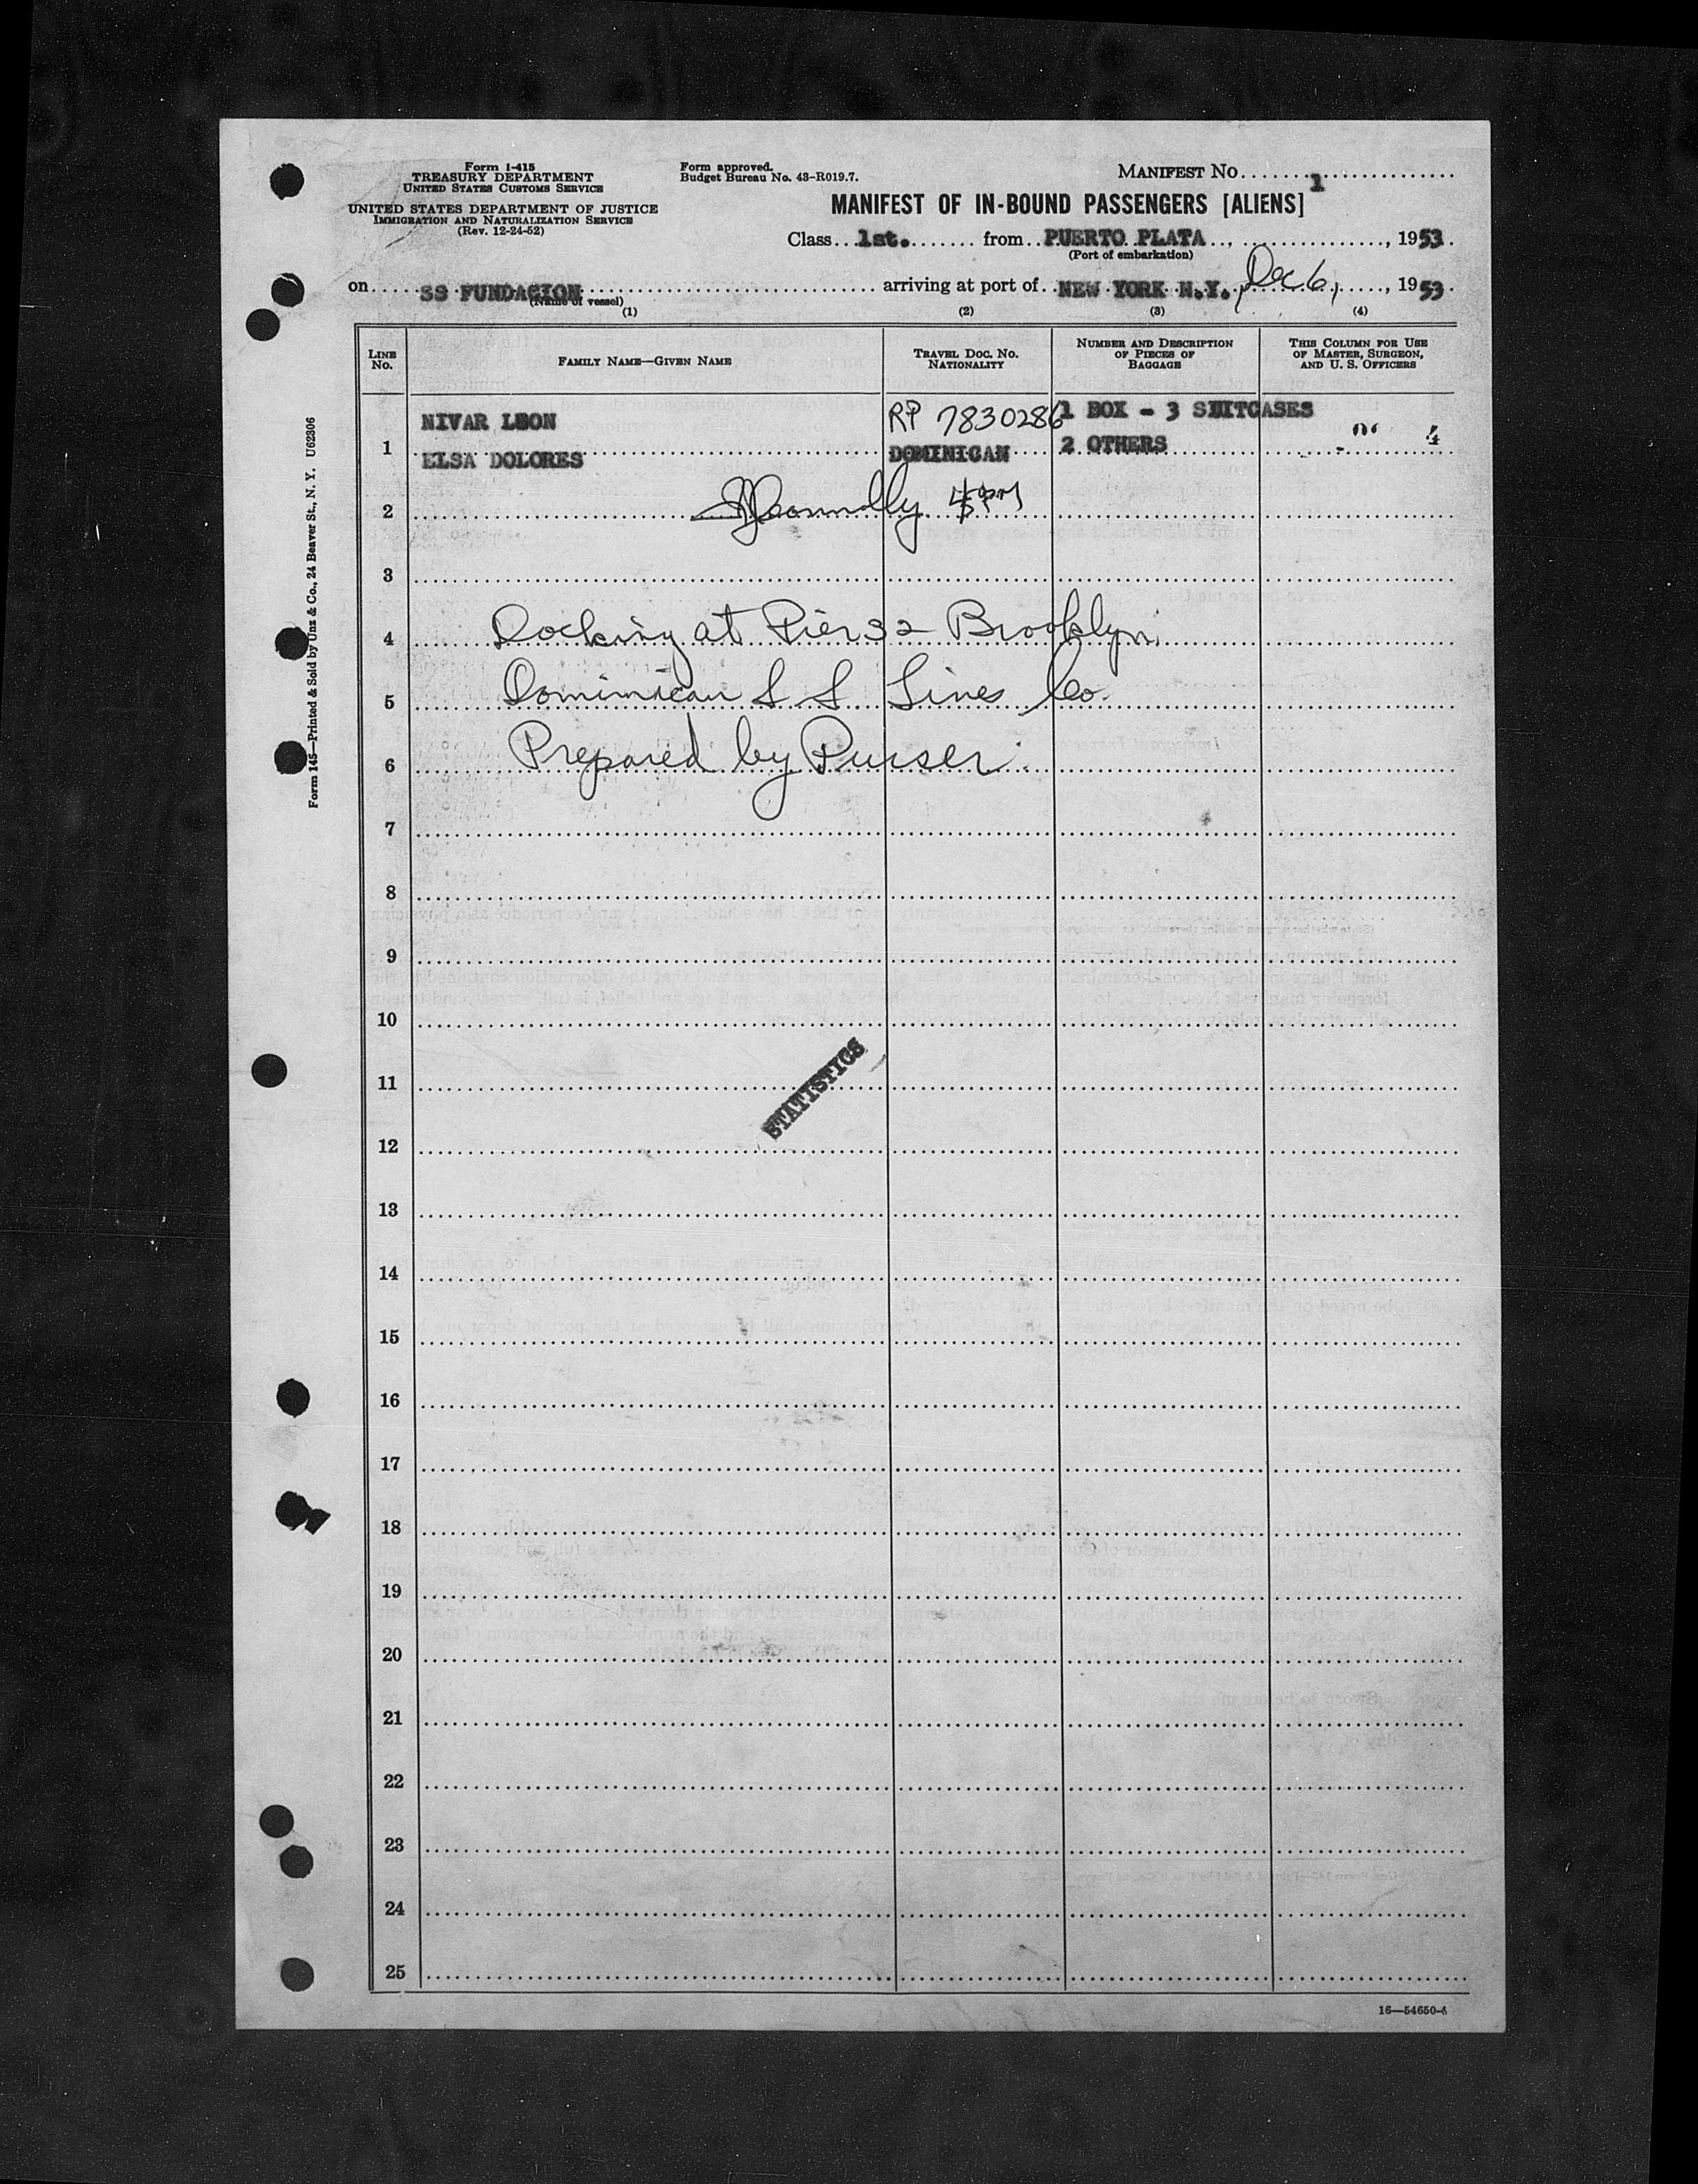 Form I-415
TREASURY DEPARTMENT
UNITED STATES CUSTOMS SERVICE
UNITED STATES DEPARTMENT OF JUSTICE
IMMIGRATION AND NATURALIZATION SERVICE
(Rev. 12-24-52)
Form approved.
Budget Bureau No. 43-R019.7.
MANIFEST No. 1
MANIFEST OF IN-BOUND PASSENGERS [ALIENS]
Class 1st. from PUERTO PLATA, 1953.
(Port of embarkation)
on SS FUNDACION arriving at port of NEW YORK N.Y., Dec 6, 1953.
(Name of vessel)
(1) (2) (3) (4)
LINE No. FAMILY NAME—GIVEN NAME TRAVEL DOC. No. NATIONALITY NUMBER AND DESCRIPTION OF PIECES OF BAGGAGE THIS COLUMN FOR USE OF MASTER, SURGEON, AND U. S. OFFICERS
NIVAR LEON RP 7830286 1 BOX - 3 SUITCASES
1 ELSA DOLORES DOMINICAN 2 OTHERS 4
2 Connolly PM
3
4 Docking at Pier 32 Brooklyn
5 Dominican S S Lines Co.
6 Prepared by Purser.
7
8
9
10
11
STATISTICS
12
13
14
15
16
17
18
19
20
21
22
23
24
25
16—54650-
Form 145—Printed & Sold by Unz & Co., 24 Beaver St., N. Y. U62306